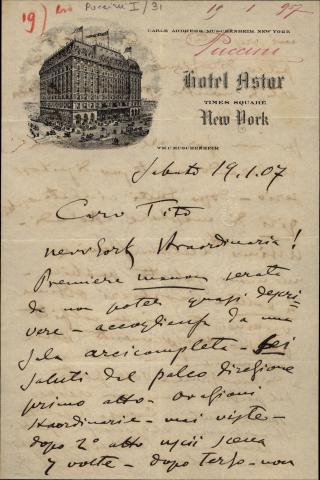 19) Puccini I/31
19 1 907
CABLE ADDRESS, MUSCHENHEIM, NEW YORK
Puccini
Hotel Astor
TIMES SQUARE
New York
WM. C. MUSCHENHEIM
Sabato 19.1.07
Caro Tito
New York straordinaria!
Première manon serata
da non poter quasi descri
vere – accoglienze da una
sala arcicompleta – Sei
saluti dal palco direzione
primo atto – ovazioni
straordinarie – mai viste –
dopo 2º atto uscii scena
7 volte – dopo terzo – non